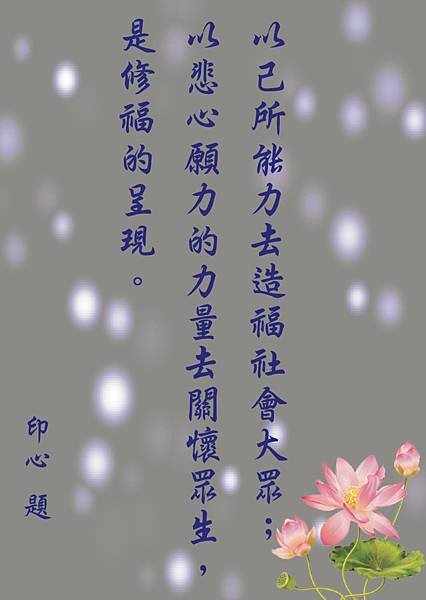 以己所能力去造福社會大眾；
以悲心願力的力量去關懷眾生，
是修福的呈現。
印心 題